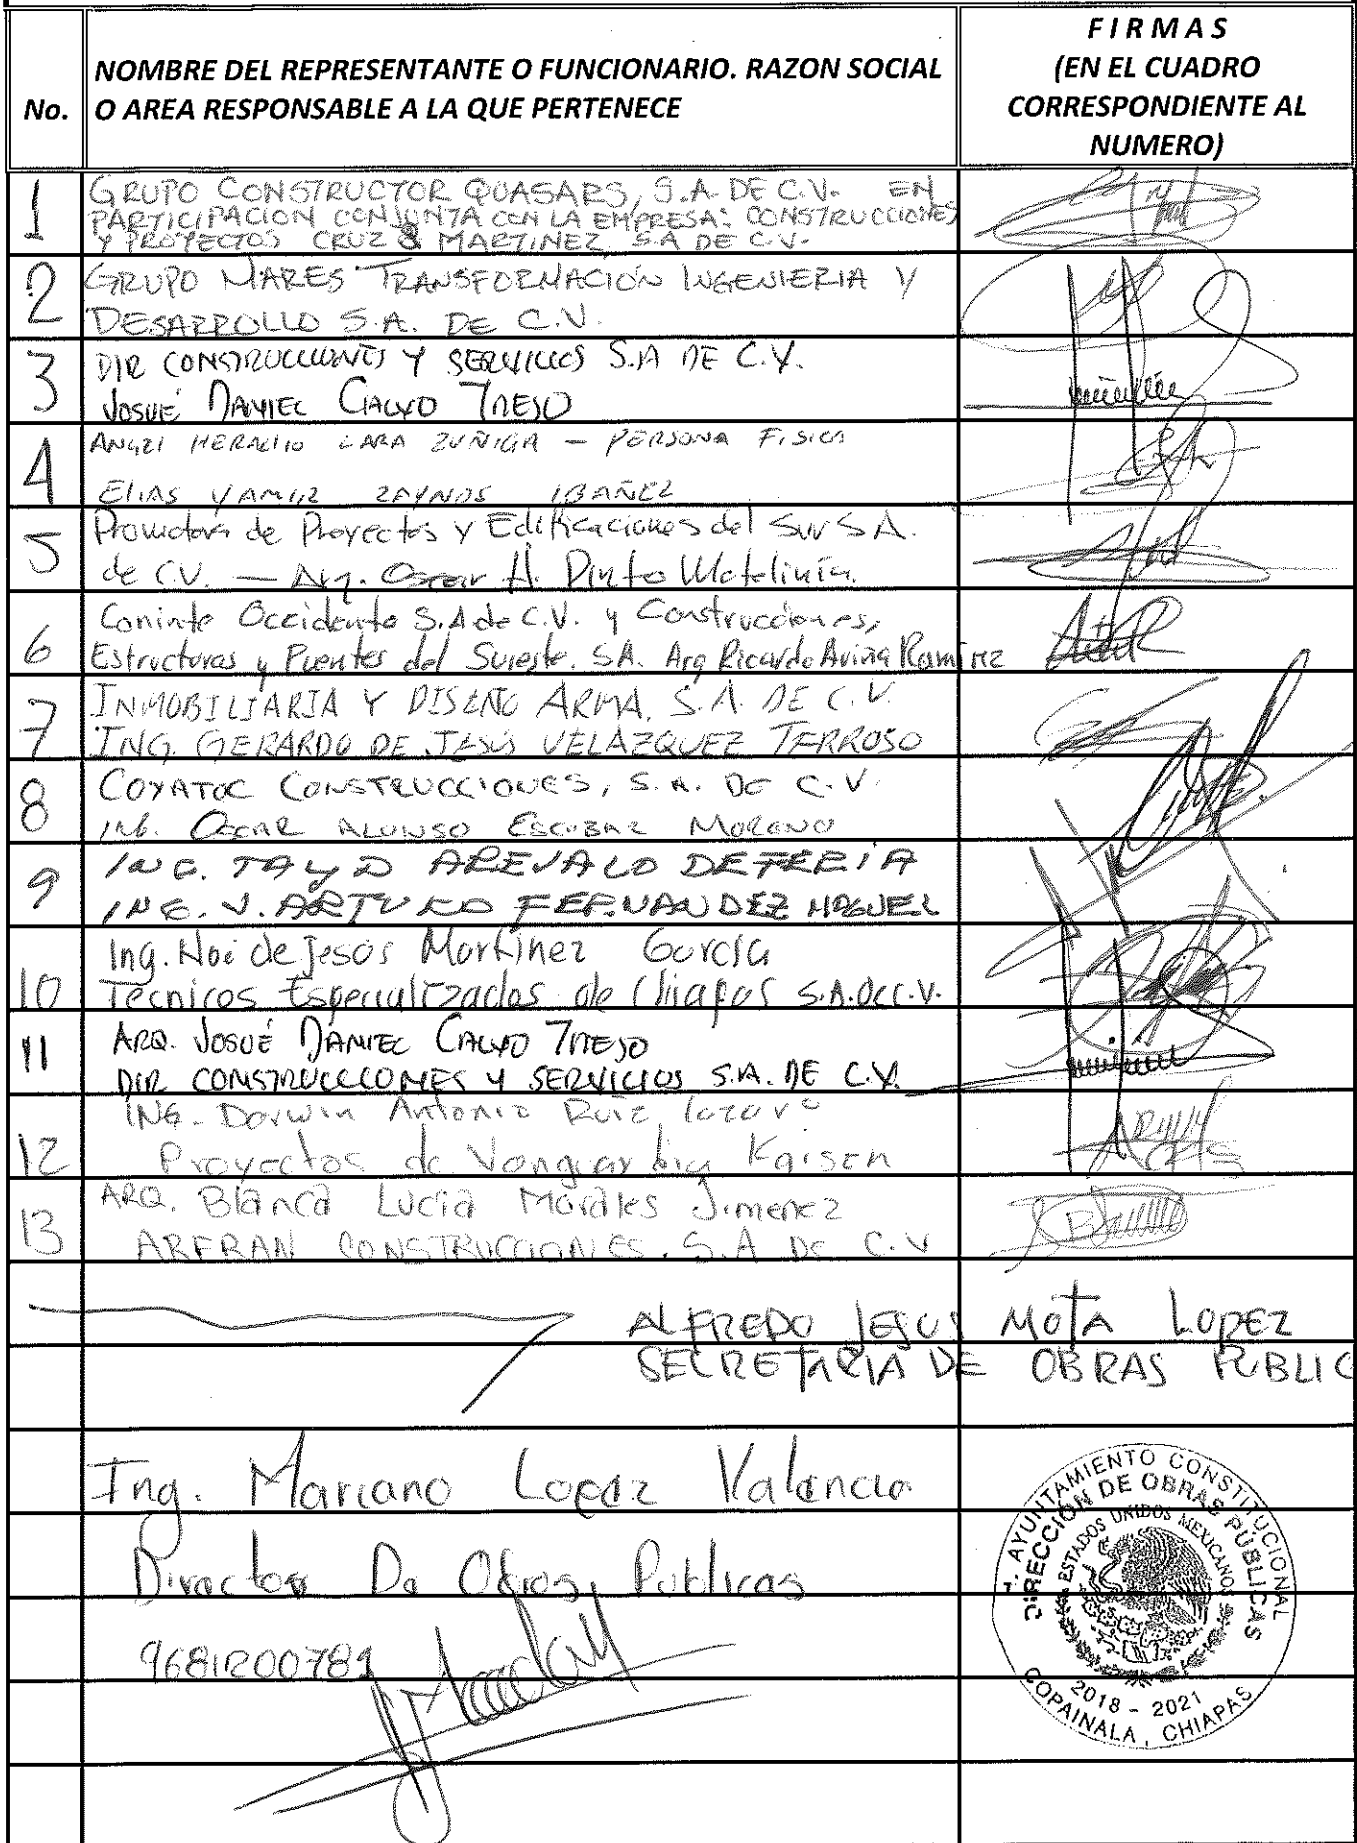 No.
NOMBRE DEL REPRESENTANTE O FUNCIONARIO. RAZON SOCIAL
O AREA RESPONSABLE A LA QUE PERTENECE
F I R M A S
(EN EL CUADRO
CORRESPONDIENTE AL
NUMERO)
1
GRUPO CONSTRUCTOR QUASARS, S.A. DE C.V. EN
PARTICIPACION CONJUNTA CON LA EMPRESA: CONSTRUCCIONES
Y PROYECTOS CRUZ & MARTINEZ S.A DE C.V.
2
GRUPO MARES TRANSFORMACIÓN INGENIERIA Y
DESARROLLO S.A. DE C.V.
3
DIR CONSTRUCCIONES Y SERVICIOS S.A DE C.V.
JOSUÉ DANIEL CALVO TREJO
4
ANGEL HERACLIO LARA ZUÑIGA – PERSONA FISICA
ELIAS YAMIR ZAYNOS IBAÑEZ
5
Promotora de Proyectos y Edificaciones del Sur S.A.
de C.V. — Arq. Oscar H. Pinto
6
Coninte Occidente S.A de C.V. y Construcciones,
Estructuras y Puentes del Sureste. SA. Arq Ricardo Aviña Ramirez
7
INMOBILIARIA Y DISEÑO ARMA, S.A. DE C.V.
ING. GERARDO DE JESÚS VELÁZQUEZ TERROSO
8
COYATOC CONSTRUCCIONES, S.A. DE C.V.
ING. OSCAR ALONSO ESCOBAR MORENO
9
ING. TAYD AREVALO DEFERIA
ING. J. ARTURO FERNANDEZ MIGUEL
10
Ing. Noé de Jesús Martínez García
Técnicos Especializados de Chiapas S.A. De C.V.
11
ARQ. JOSUÉ DANIEL CALVO TREJO
DIR CONSTRUCCCONES Y SERVICIOS S.A. DE C.V.
12
ING. Darwin Antonio Ruiz Lazaro
Proyectos de Vanguardia Kaisen
13
ARQ. Blanca Lucia Morales Jimenez
ARFRAN CONSTRUCCIONES, S.A DE C.V
ALFREDO JESUS MOTA LOPEZ
SECRETARIA DE OBRAS PUBLIC
Ing. Mariano Lopez Valencia
Director De Obras Publicas
9681200781
H. AYUNTAMIENTO CONSTITUCIONAL
DIRECCIÓN DE OBRAS PÚBLICAS
ESTADOS UNIDOS MEXICANOS
2018 - 2021
COPAINALA, CHIAPAS